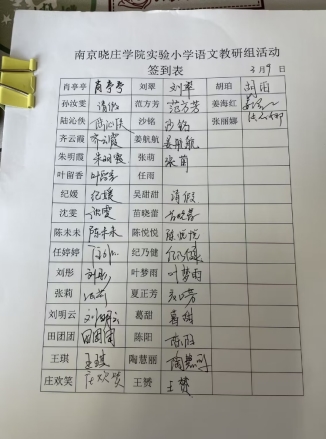 南京晓庄学院实验小学语文教研组活动
签到表
3月9日
肖亭亭 肖亭亭 刘翠 刘翠 胡珀 胡珀
孙汝雯 请假 范方芳 范方芳 姜海红
陆沁佚 陆沁佚 沙铭 沙铭 张丽娜
齐云霞 齐云霞 姜航航 姜航航
朱明霞 朱明霞 张萌 张萌
叶留香 叶留香 任雨
纪媛 纪媛 吴甜甜 请假
沈雯 沈雯 苗晓蕾 苗晓蕾
陈未未 陈未未 陈悦悦 陈悦悦
任婷婷 纪乃健 纪乃健
刘彤 刘彤 叶梦雨 叶梦雨
张莉 张莉 夏正芳 夏正芳
刘明云 刘明云 葛甜 葛甜
田团团 田团团 陈阳 陈阳
王琪 王琪 陶慧丽 陶慧丽
庄欢笑 庄欢笑 王赟 王赟